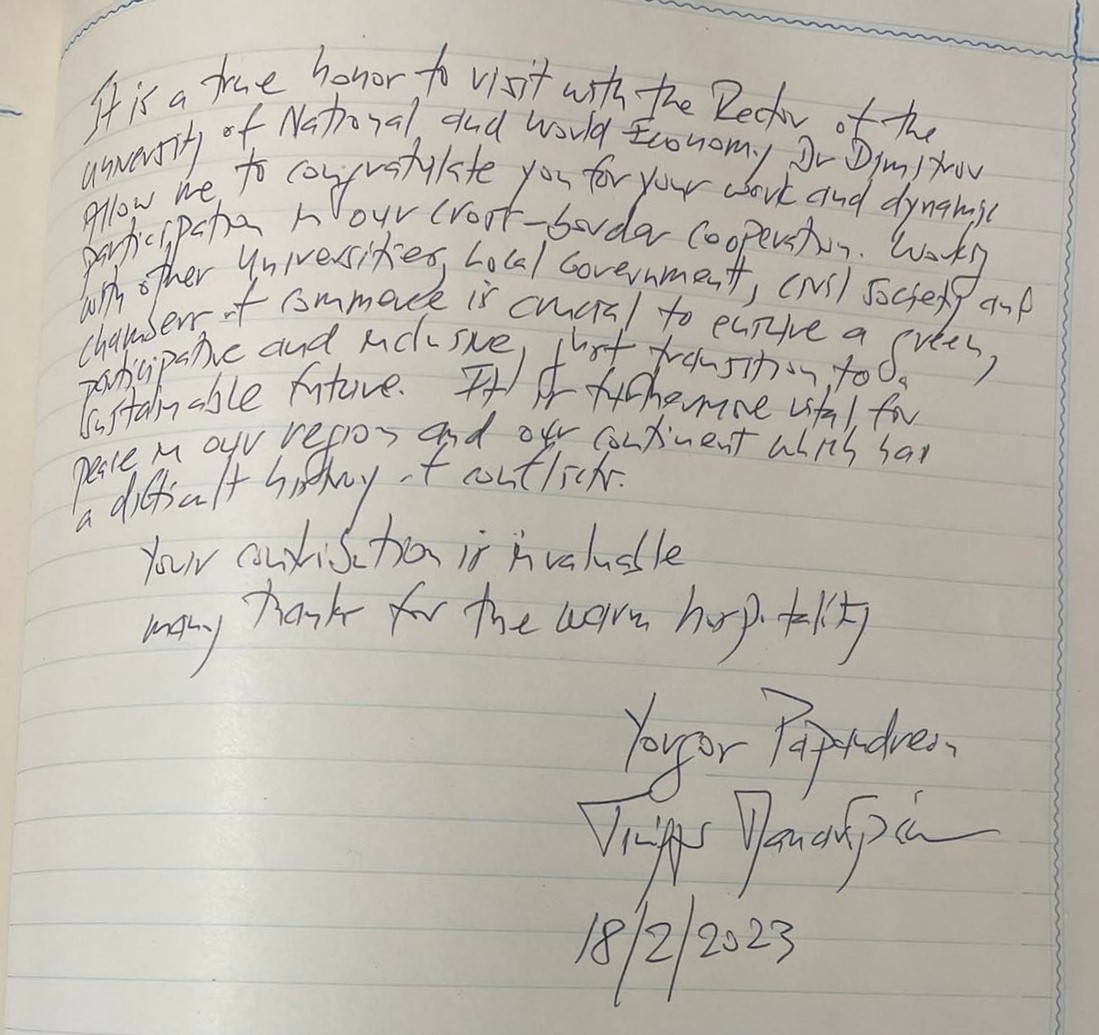 It is a true honor to visit with the Rector of the
University of National and World Economy Dr Dimitrov
Allow me to congratulate you for your work and dynamic
participation in our cross-border cooperation. Working
with other Universities, Local Government, civil society and
chambers of commerce is crucial to ensure a green,
participative and inclusive, just transition, to a
sustainable future. It is furthermore vital for
peace in our region and our continent which has
a difficult history of conflicts.
Your contribution is invaluable
many thanks for the warm hospitality
Yorgos Papandreou
Γιώργος Παπανδρέου
18/2/2023